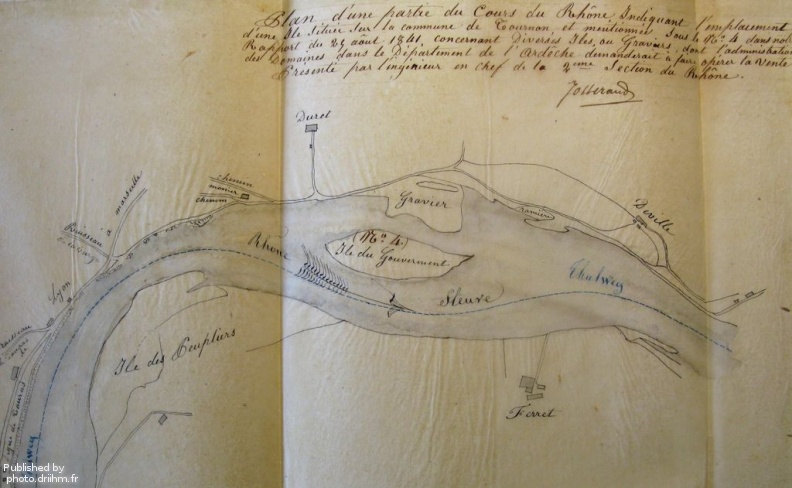 Plan d'une partie du Cours du Rhône Indiquant l'emplacement
d'une Ile Située Sur la commune de Tournon et mentionnée Sous le N.º 4 dans notre
Rapport du août 1841 concernant Diverses Iles ou Graviers, dont l'administration
des Domaines dans le Département de l'Ardèche demanderait à faire opérer la Vente
Présenté par l'ingénieur en chef de la 2ème Section du Rhône.
Josserand
Duret
chemin
monier
chemin
Gravier
Deville
à marseille
Rousseau
(N.º 4.)
Rhône
Ile du Gouverment
Thalweg
Fleuve
Lyon
Ile des Peupliers
Ferret
Published by
photo.driihm.fr